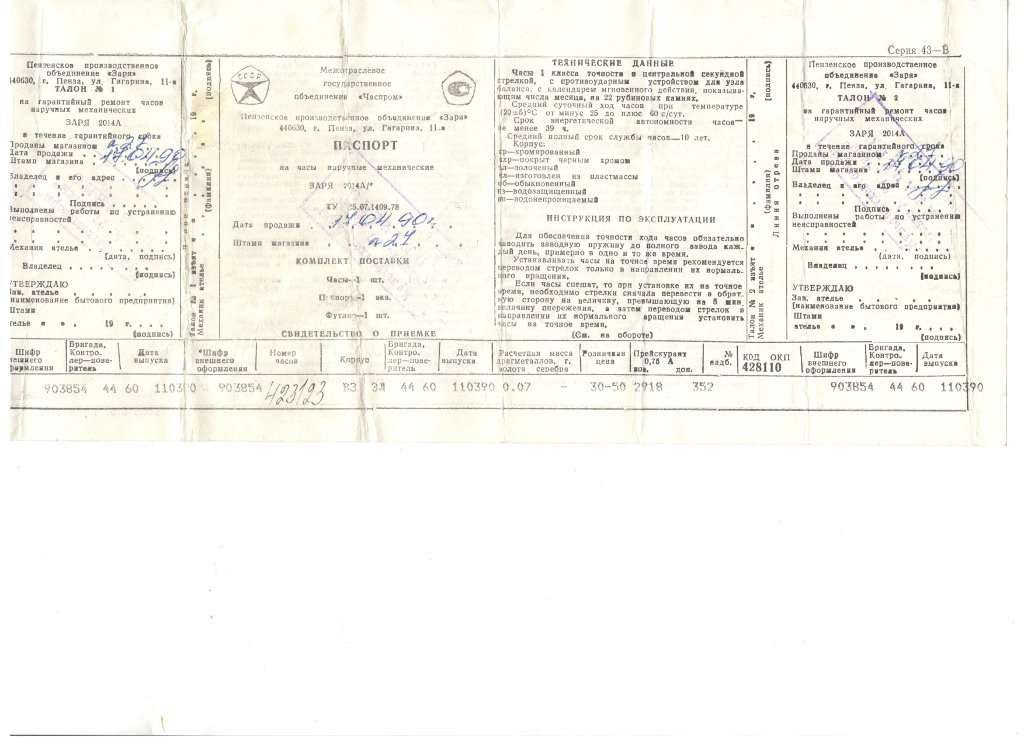 Серия 43—В
Пензенское производственное
объединение «Заря»
440630, г. Пенза, ул. Гагарина, 11-а
ТАЛОН № 1
на гарантийный ремонт часов
наручных механических
ЗАРЯ 2014А
в течение гарантийного срока
Проданы магазином
Дата продажи 17.04.90
Штамп магазина
(подпись)
Владелец и его адрес
Подпись
Выполнены работы по устранению
неисправностей
Механик ателье
(дата, подпись)
Владелец
(подпись)
УТВЕРЖДАЮ
Зав. ателье
(наименование бытового предприятия)
Штамп
ателье « » 19 г.
(подпись)
Талон № 1 изъят « » 19 г.
Механик ателье (фамилия) (подпись)
СССР
Межотраслевое
государственное
объединение «Часпром»
Пензенское производственное объединение «Заря»
440630, г. Пенза, ул. Гагарина, 11-а
ПАСПОРТ
на часы наручные механические
ЗАРЯ 2014А/*
ТУ 25.07.1409.78
Дата продажи 17.04.90г.
Штамп магазина
КОМПЛЕКТ ПОСТАВКИ
Часы—1 шт.
Паспорт—1 экз.
Футляр—1 шт.
СВИДЕТЕЛЬСТВО О ПРИЕМКЕ
ТЕХНИЧЕСКИЕ ДАННЫЕ
Часы 1 класса точности с центральной секундной
стрелкой, с противоударным устройством для узла
баланса, с календарем мгновенного действия, показыва-
ющим числа месяца, на 22 рубиновых камнях.
Средний суточный ход часов при температуре
(20±5)°С от минус 25 до плюс 60 с/сут.
Срок энергетической автономности часов—
не менее 39 ч.
Средний полный срок службы часов—10 лет.
Корпус:
хр—хромированный
чхр—покрыт черным хромом
зл—золоченый
пл—изготовлен из пластмассы
об—обыкновенный
вз—водозащищенный
вн—водонепроницаемый
ИНСТРУКЦИЯ ПО ЭКСПЛУАТАЦИИ
Для обеспечения точности хода часов обязательно
заводить заводную пружину до полного завода каж-
дый день, примерно в одно и то же время.
Устанавливать часы на точное время рекомендуется
переводом стрелок только в направлении их нормаль-
ного вращения.
Если часы спешат, то при установке их на точное
время, необходимо стрелки сначала перевести в обрат-
ную сторону на величину, превышающую на 5 мин.
величину опережения, а затем переводом стрелок в
направлении их нормального вращения установить
часы на точное время.
(См. на обороте)
Талон № 2 изъят « » 19 г.
Механик ателье (фамилия) (подпись)
Линия отреза
Пензенское производственное
объединение «Заря»
440630, г. Пенза, ул. Гагарина, 11-а
ТАЛОН № 2
на гарантийный ремонт часов
наручных механических
ЗАРЯ 2014А
в течение гарантийного срока
Проданы магазином
Дата продажи
Штамп магазина
(подпись)
Владелец и его адрес
Подпись
Выполнены работы по устранению
неисправностей
Механик ателье
(дата, подпись)
Владелец
(подпись)
УТВЕРЖДАЮ
Зав. ателье
(наименование бытового предприятия)
Штамп
ателье « » 19 г.
(подпись)
Шифр внешнего оформления
Бригада, Контро- лер—пове- ритель
Дата выпуска
*Шифр внешнего оформления
Номер часов
Корпус
Бригада, Контро- лер—пове- ритель
Дата выпуска
Расчетная масса драгметаллов, г. золота серебра
Розничная цена
Прейскурант 0,75 А поз. доп.
№ надб.
КОД ОКП 428110
Шифр внешнего оформления
Бригада, Контро- лер—пове- ритель
Дата выпуска
903854 44 60 110390 903854 423123 ВЗ ЗЛ 44 60 110390 0.07 - 30-50 2918 352 903854 44 60 110390